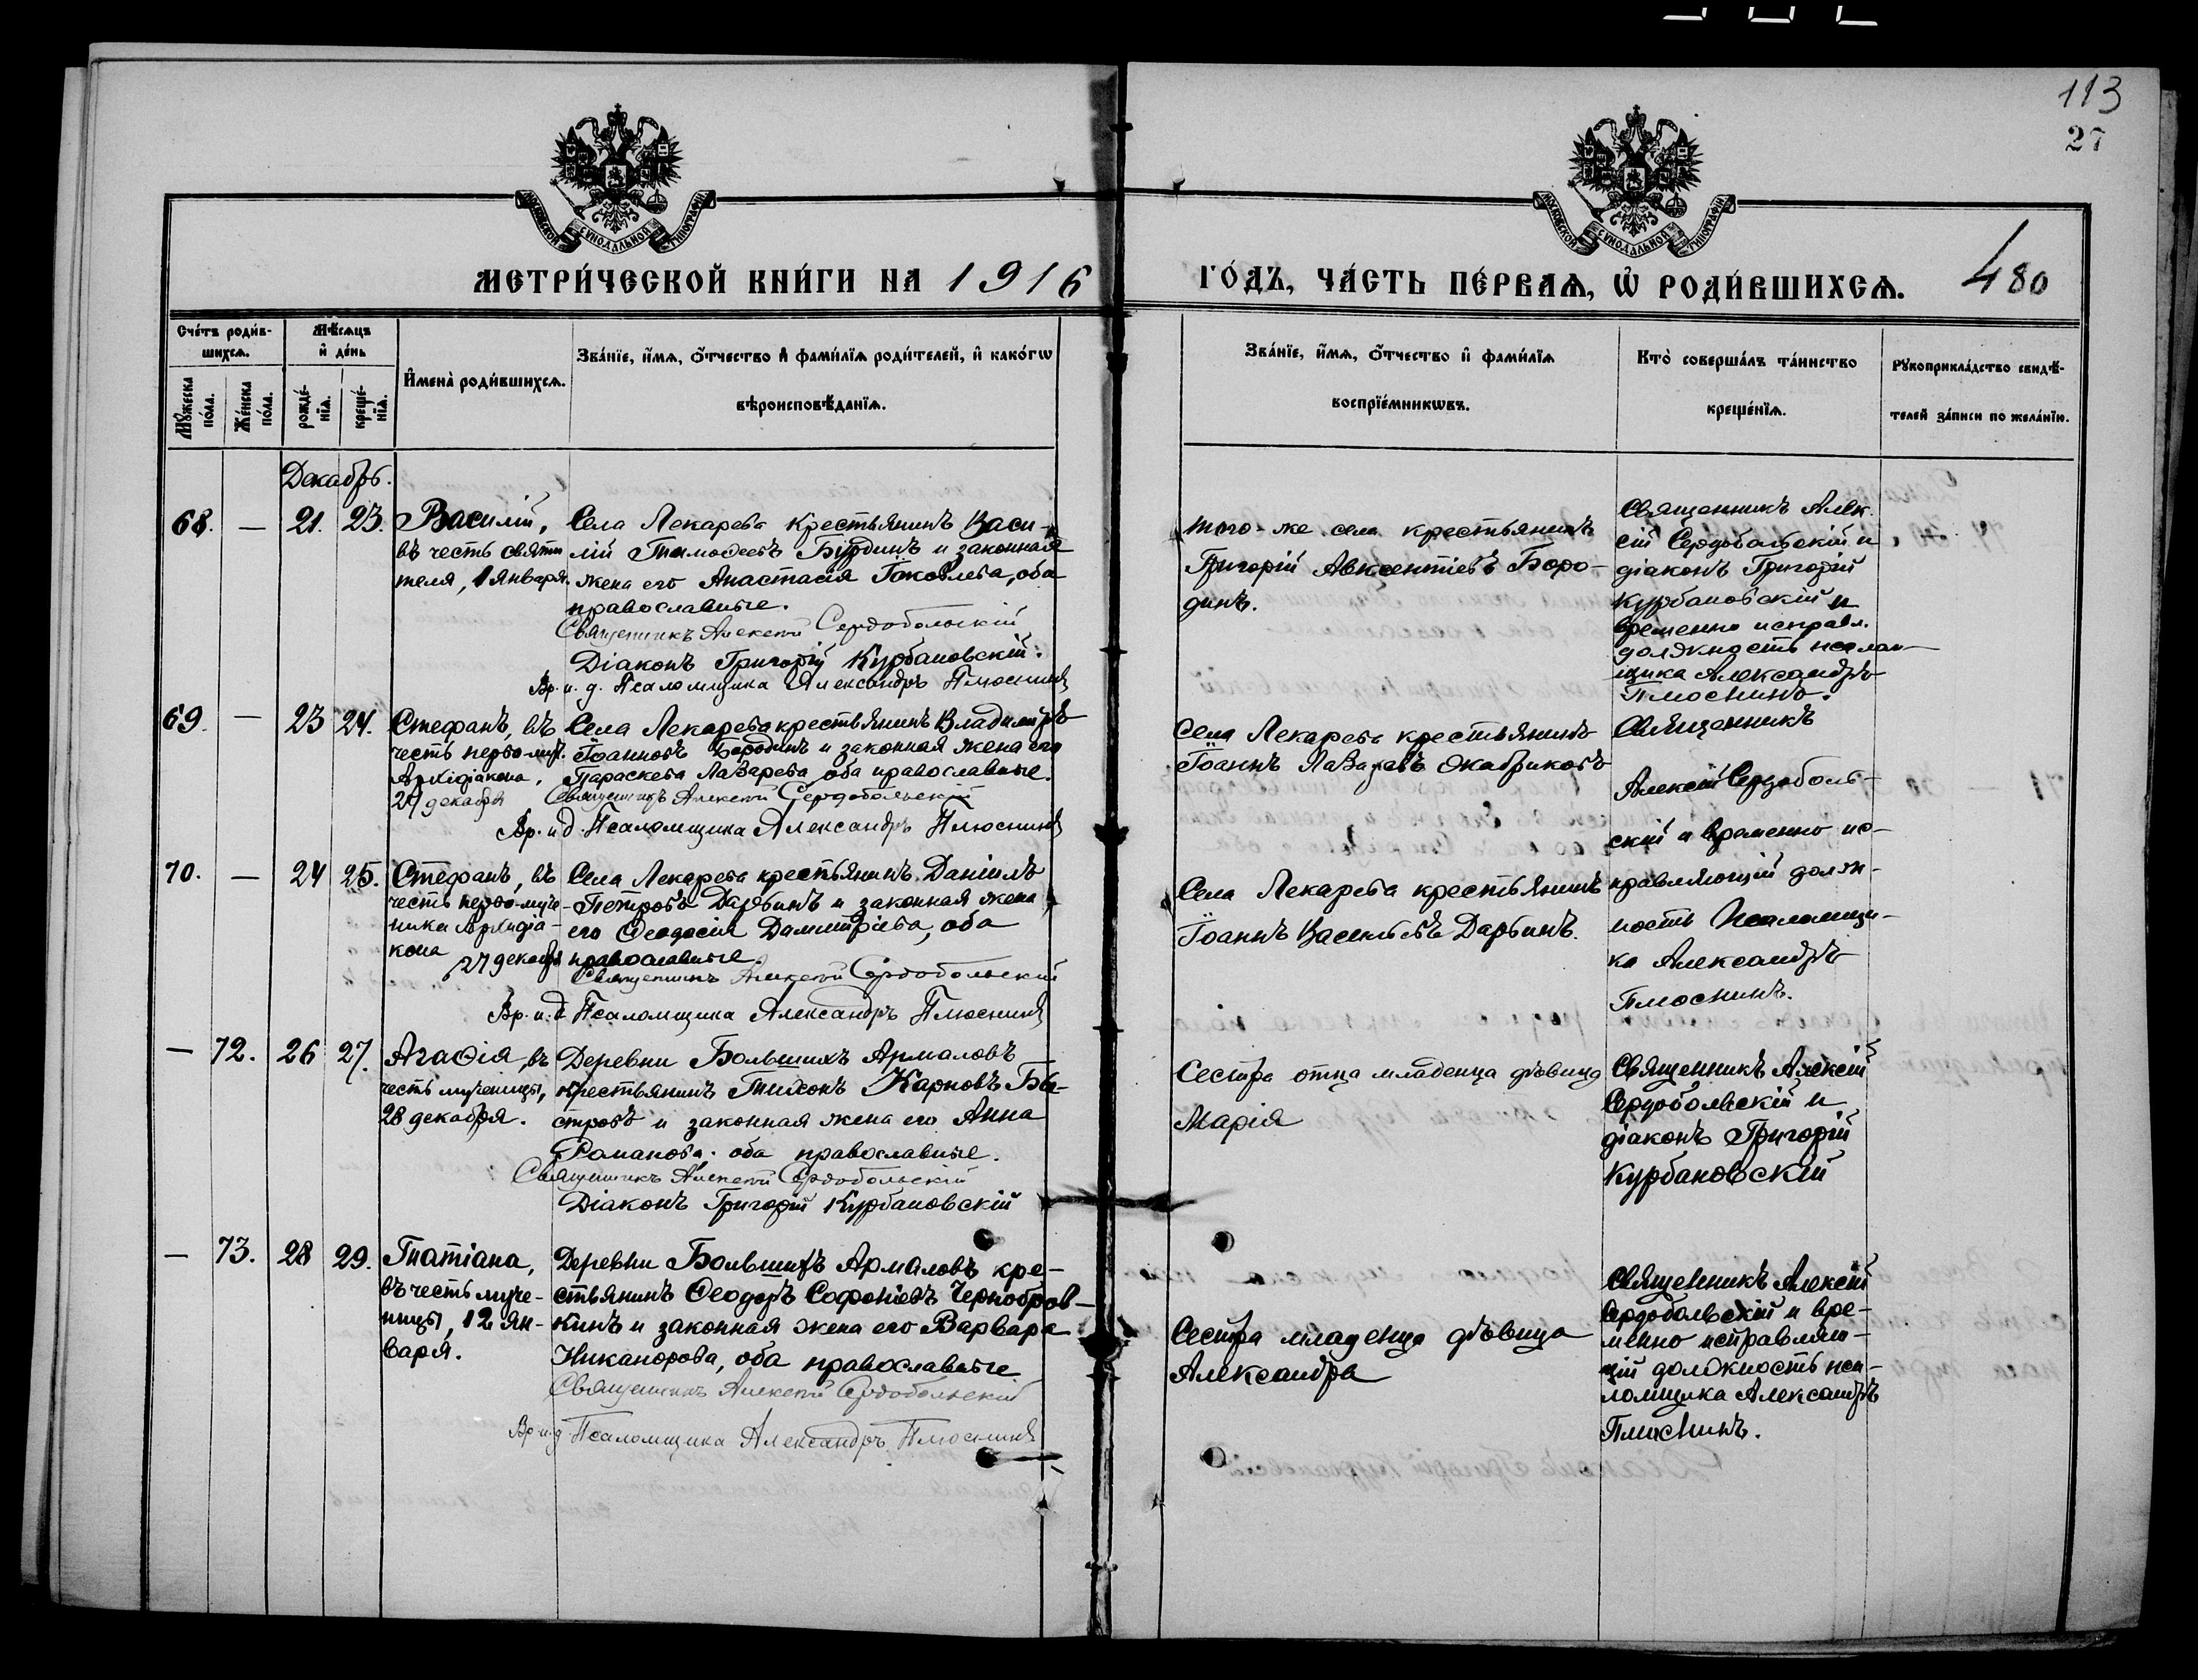 113
27
МОСКОВСКОЙ СѴНОДАЛЬНОЙ ТИПОГРАФІИ
МОСКОВСКОЙ СѴНОДАЛЬНОЙ ТИПОГРАФІИ
МЕТРИ́ЧЕСКОЙ КНИ́ГИ НА 1916 ГО́ДЪ, ЧА́СТЬ ПЕ́РВАѦ, Ѽ РОДИ́ВШИХСѦ. 480
Сче́тъ роди́в-
шихсѧ.
Мꙋ́жеска
по́ла.
Же́нска
по́ла.
Мѣ́сѧцъ
и҆ де́нь
рожде́-
нїѧ.
креще́-
нїѧ.
И҆мена̀ роди́вшихсѧ.
Зва́нїе, и҆́мѧ, ѻ҆́тчество и҆ фами́лїѧ роди́телей, и҆ како́гѡ
вѣроисповѣ́данїѧ.
Зва́нїе, и҆́мѧ, ѻ҆́тчество и҆ фами́лїѧ
воспрїе́мникѡвъ.
Кто̀ соверша́лъ та́инство
креще́нїѧ.
Рꙋкоприкла́дство свидѣ́-
телей за́писи по жела́нїю.
Декабрь.
68. — 21. 23.
Василій,
въ честь святи
теля, 1 января.
Села Лекарева крестьянинъ Васи-
лій Тимоѳеевъ Бурдинъ и законная
жена его Анастасія Іаковлева, оба
православные.
Священникъ Алексій Сердобольскій
Діаконъ Григорій Курбановскій.
Вр. и. д. Псаломщика Александръ Плюснинъ
того-же села крестьянинъ
Григорій Авксентіевъ Боро-
динъ.
Священникъ Алек
сій Сердобольскій и
діаконъ Григорій
Курбановскій и
временно исправл.
должность псалом
щика Александръ
Плюснинъ.
69. — 23 24.
Стефанъ, въ
честь перво-муч.
Архидіакона,
27 декабря
Села Лекарева крестьянинъ Владиміръ
Іоанновъ Бородинъ и законная жена его
Параскева Лазарева, оба православные.
Священникъ Алексій Сердобольскій
Вр. и д. Псаломщика Александръ Плюснинъ
Села Лекарева крестьянинъ
Іоаннъ Лазаревъ Окабриковъ
Священникъ
Алексій Сердоболь-
скій и временно ис-
правляющій долж-
ность Псаломщи-
ка Александръ
Плюснинъ.
70. — 24 25.
Стефанъ, въ
честь перво-муче-
ника Архидіа-
кона
27 декабря
Села Лекарева крестьянинъ Даніилъ
Петровъ Дарьинъ и законная жена
его Ѳеодосія Димитріева, оба
православные
Священникъ Алексій Сердобольскій
Вр. и. д. Псаломщика Александръ Плюснинъ
Села Лекарева крестьянинъ
Іоаннъ Васильевъ Дарьинъ.
— 72. 26 27.
Агаѳія, въ
честь мученицы,
28 декабря.
Деревни Большихъ Армаловъ
крестьянинъ Тихонъ Карповъ Бы-
стровъ и законная жена его Анна
Романова, оба православные.
Священникъ Алексій Сердобольскій
Діаконъ Григорій Курбановскій
Сестра отца младенца дѣвица
Марія
Священникъ Алексій
Сердобольскій и
діаконъ Григорій
Курбановскій
— 73. 28 29.
Татіана,
въ честь муче-
ницы, 12 ян-
варя.
Деревни Большихъ Армаловъ кре-
стьянинъ Ѳеодоръ Софоніевъ Чернобров-
кинъ и законная жена его Варвара
Никанорова, оба православные
Священникъ Алексій Сердобольскій
Вр. и. д. Псаломщика Александръ Плюснинъ
Сестра младенца дѣвица
Александра
Священникъ Алексій
Сердобольскій и вре-
менно исправляю-
щій должность пса-
ломщика Александръ
Плюснинъ.